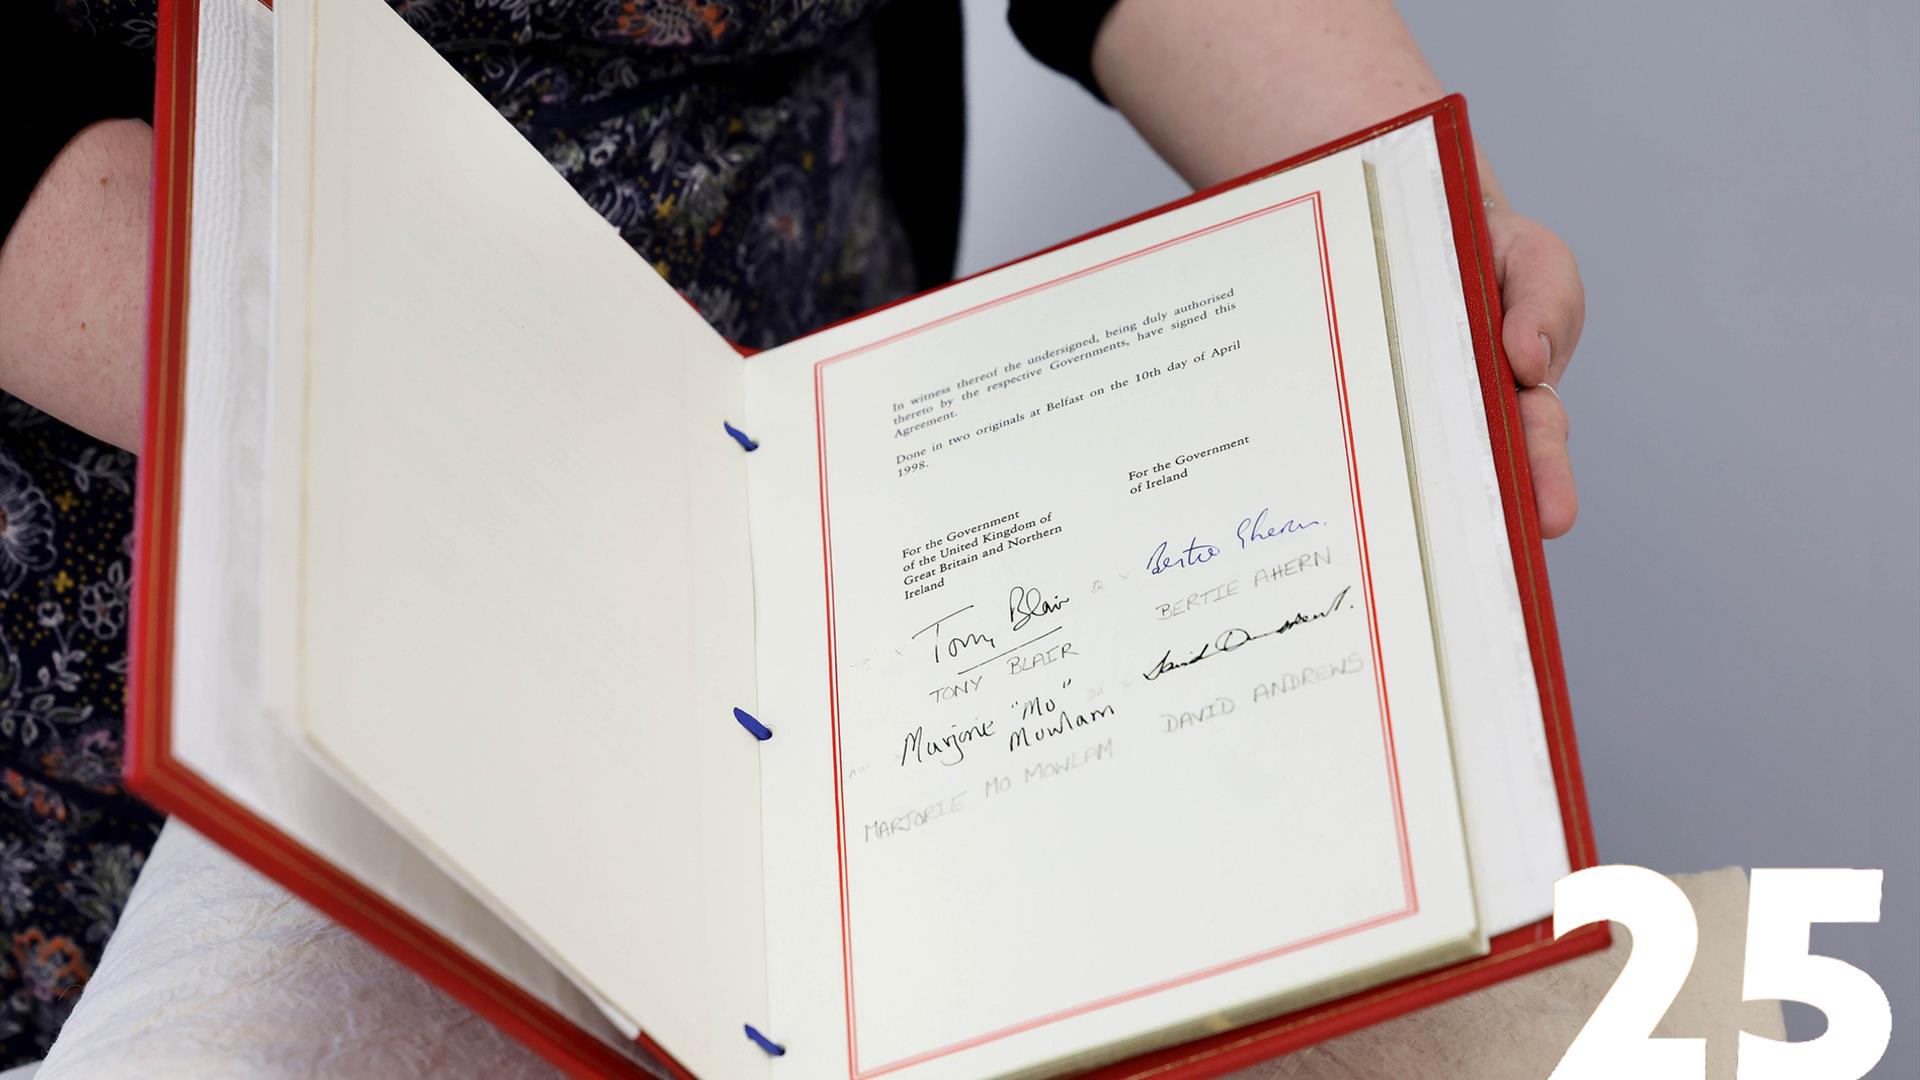 In witness thereof the undersigned, being duly authorised
thereto by the respective Governments, have signed this
Agreement.
Done in two originals at Belfast on the 10th day of April
1998.
For the Government
of the United Kingdom of
Great Britain and Northern
Ireland
For the Government
of Ireland
Tony Blair
TONY BLAIR
Bertie Ahern
BERTIE AHERN
Marjorie "Mo"
Mowlam
MARJORIE MO MOWLAM
DAVID ANDREWS
25